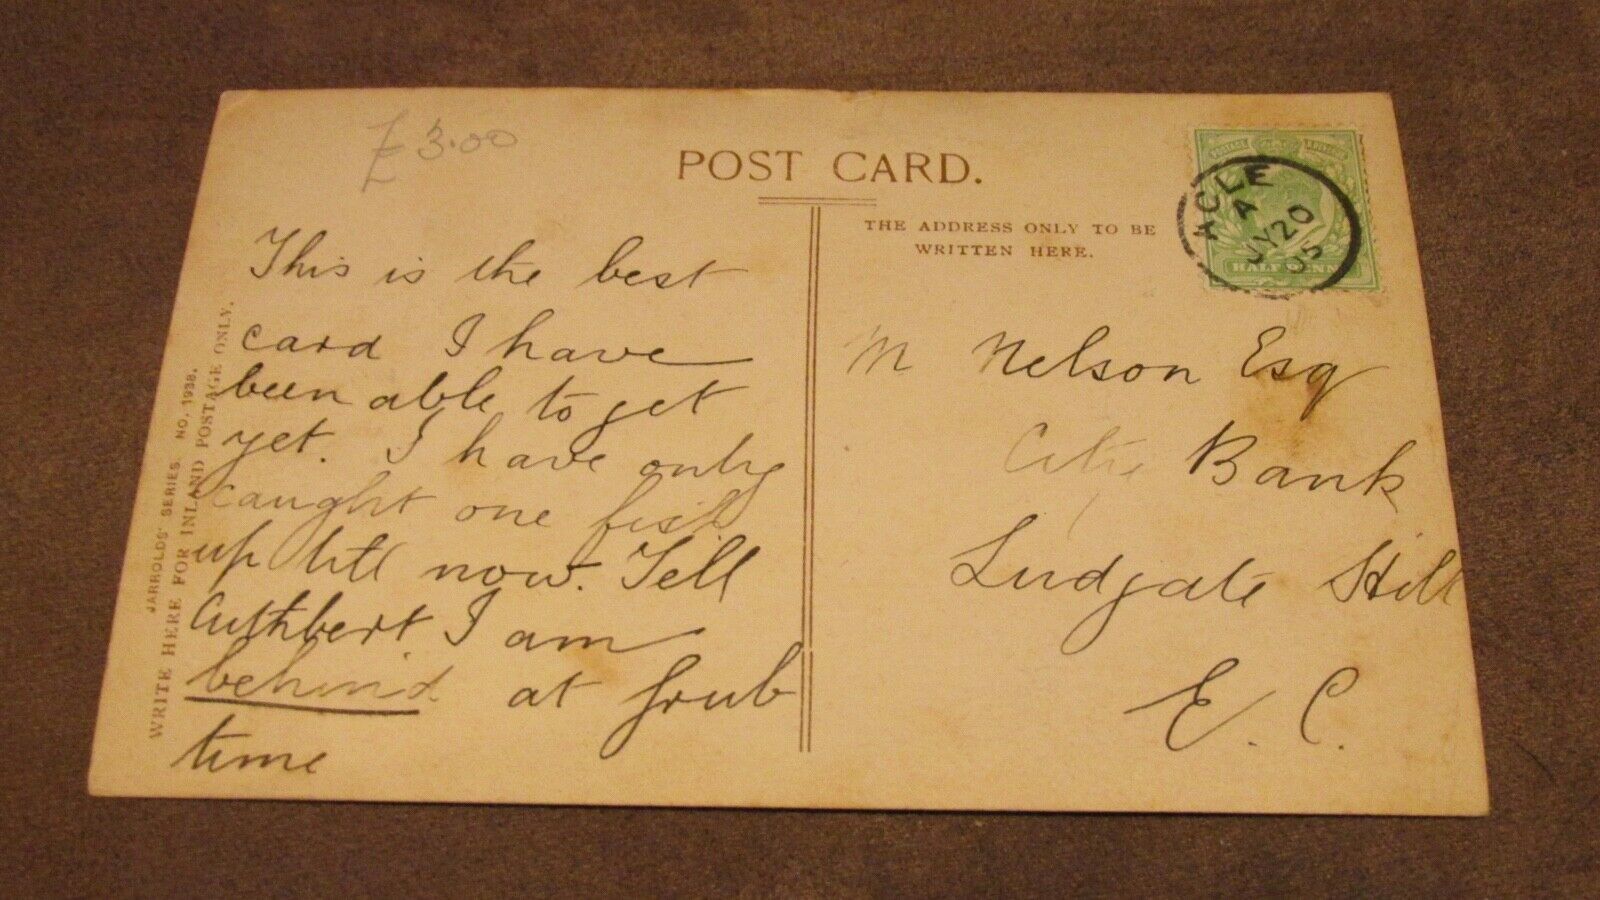 £3.00
POST CARD.
THE ADDRESS ONLY TO BE
WRITTEN HERE.
ACLE
A
JY 20
05
HALF PENNY
JARROLDS' SERIES. NO. 1938.
WRITE HERE FOR INLAND POSTAGE ONLY.
This is the best
card I have
been able to get
yet. I have only
caught one fish
up till now. Tell
Cuthbert I am
behind at grub
time
M Nelson Esq
City Bank
Ludgate Hill
E. C.